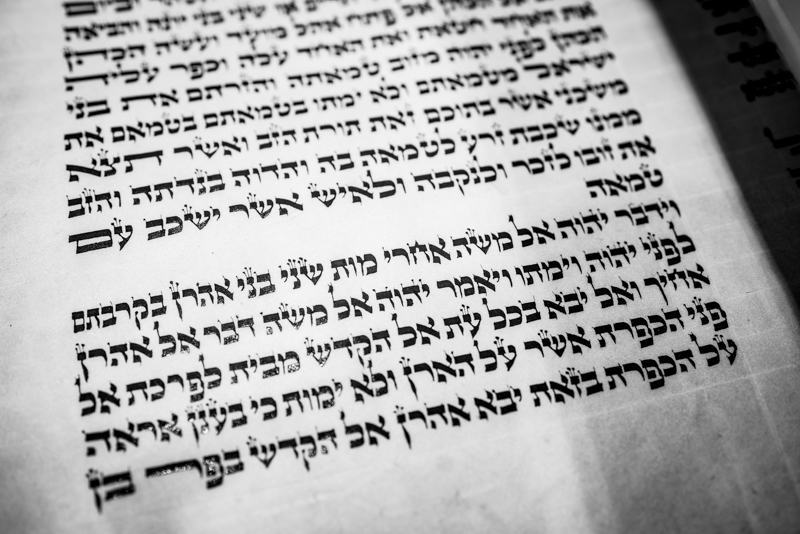 וביום
או שני בני יונה והביאה
אל פתח אהל מועד ועשה הכהן
את האחד חטאת ואת האחד עלה וכפר עליה
הכהן לפני יהוה מזוב טמאתה והזרתם את בני
ישראל מטמאתם ולא ימתו בטמאתם בטמאם את
משכני אשר בתוכם זאת תורת הזב ואשר תצא
ממנו שכבת זרע לטמאה בה והדוה בנדתה והזב
את זובו לזכר ולנקבה ולאיש אשר ישכב עם
טמאה
וידבר יהוה אל משה אחרי מות שני בני אהרן בקרבתם
לפני יהוה וימתו ויאמר יהוה אל משה דבר אל אהרן
אחיך ואל יבא בכל עת אל הקדש מבית לפרכת אל
פני הכפרת אשר על הארן ולא ימות כי בענן אראה
על הכפרת בזאת יבא אהרן אל הקדש בפר בן